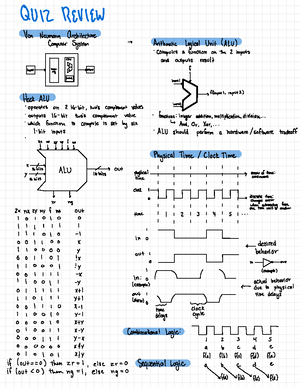 QUIZ REVIEW
Von Neumann Architecture
Computer System
Arithmetic Logical Unit (ALU)
• Computes a function on the 2 inputs
and outputs result
input1
input2
f(input1, input2)
• functions: integer addition, multiplication, division...
And, Or, Xor, ...
• ALU should perform a hardware/software tradeoff
Hack ALU
• operates on 2 16-bit, two's complement values
• outputs 16-bit two's complement value
• which function to compute is set by six
1-bit inputs
zx nx zy ny f no
x
16 bits
y
16 bits
ALU
out
16 bits
zr ng
Physical Time / Clock Time
physical time
clock
time
1 2 3 4 5
in
out
desired
behavior
(example)
in:
out
actual behavior
due to physical
time delays
time
delays
clock
cycle
zx nx zy ny f no out
1 0 1 0 1 0 0
1 1 1 1 1 1 1
1 1 1 0 1 0 -1
0 0 1 1 0 0 x
1 1 0 0 0 0 y
0 0 1 1 0 1 !x
1 1 0 0 0 1 !y
0 0 1 1 1 1 -x
1 1 0 0 1 1 -y
0 1 1 1 1 1 x+1
1 1 0 1 1 1 y+1
0 0 1 1 1 0 x-1
1 1 0 0 1 0 y-1
0 0 0 0 1 0 x+y
0 1 0 0 1 1 x-y
0 0 0 1 1 1 y-x
0 0 0 0 0 0 x&y
0 1 0 1 0 1 x|y
if (out==0) then zr=1, else zr=0
if (out<0) then ng=1, else ng=0
Combinational Logic
1 2 3 4 5
a b c d e
f(a) f(b) f(c) f(d) f(e)
Sequential Logic
a b c d e
f(a) f(b) f(c) f(d)